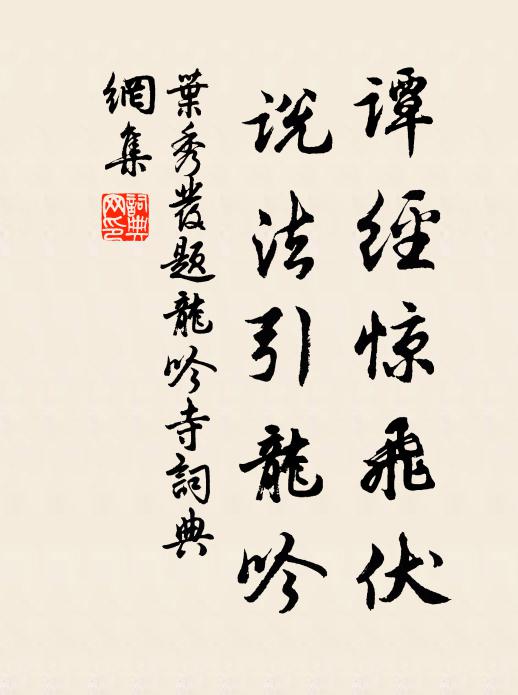 譚經惊飛伏
说法引龍吟
葉秀發題龍吟寺詞典
網集
詞典
网印